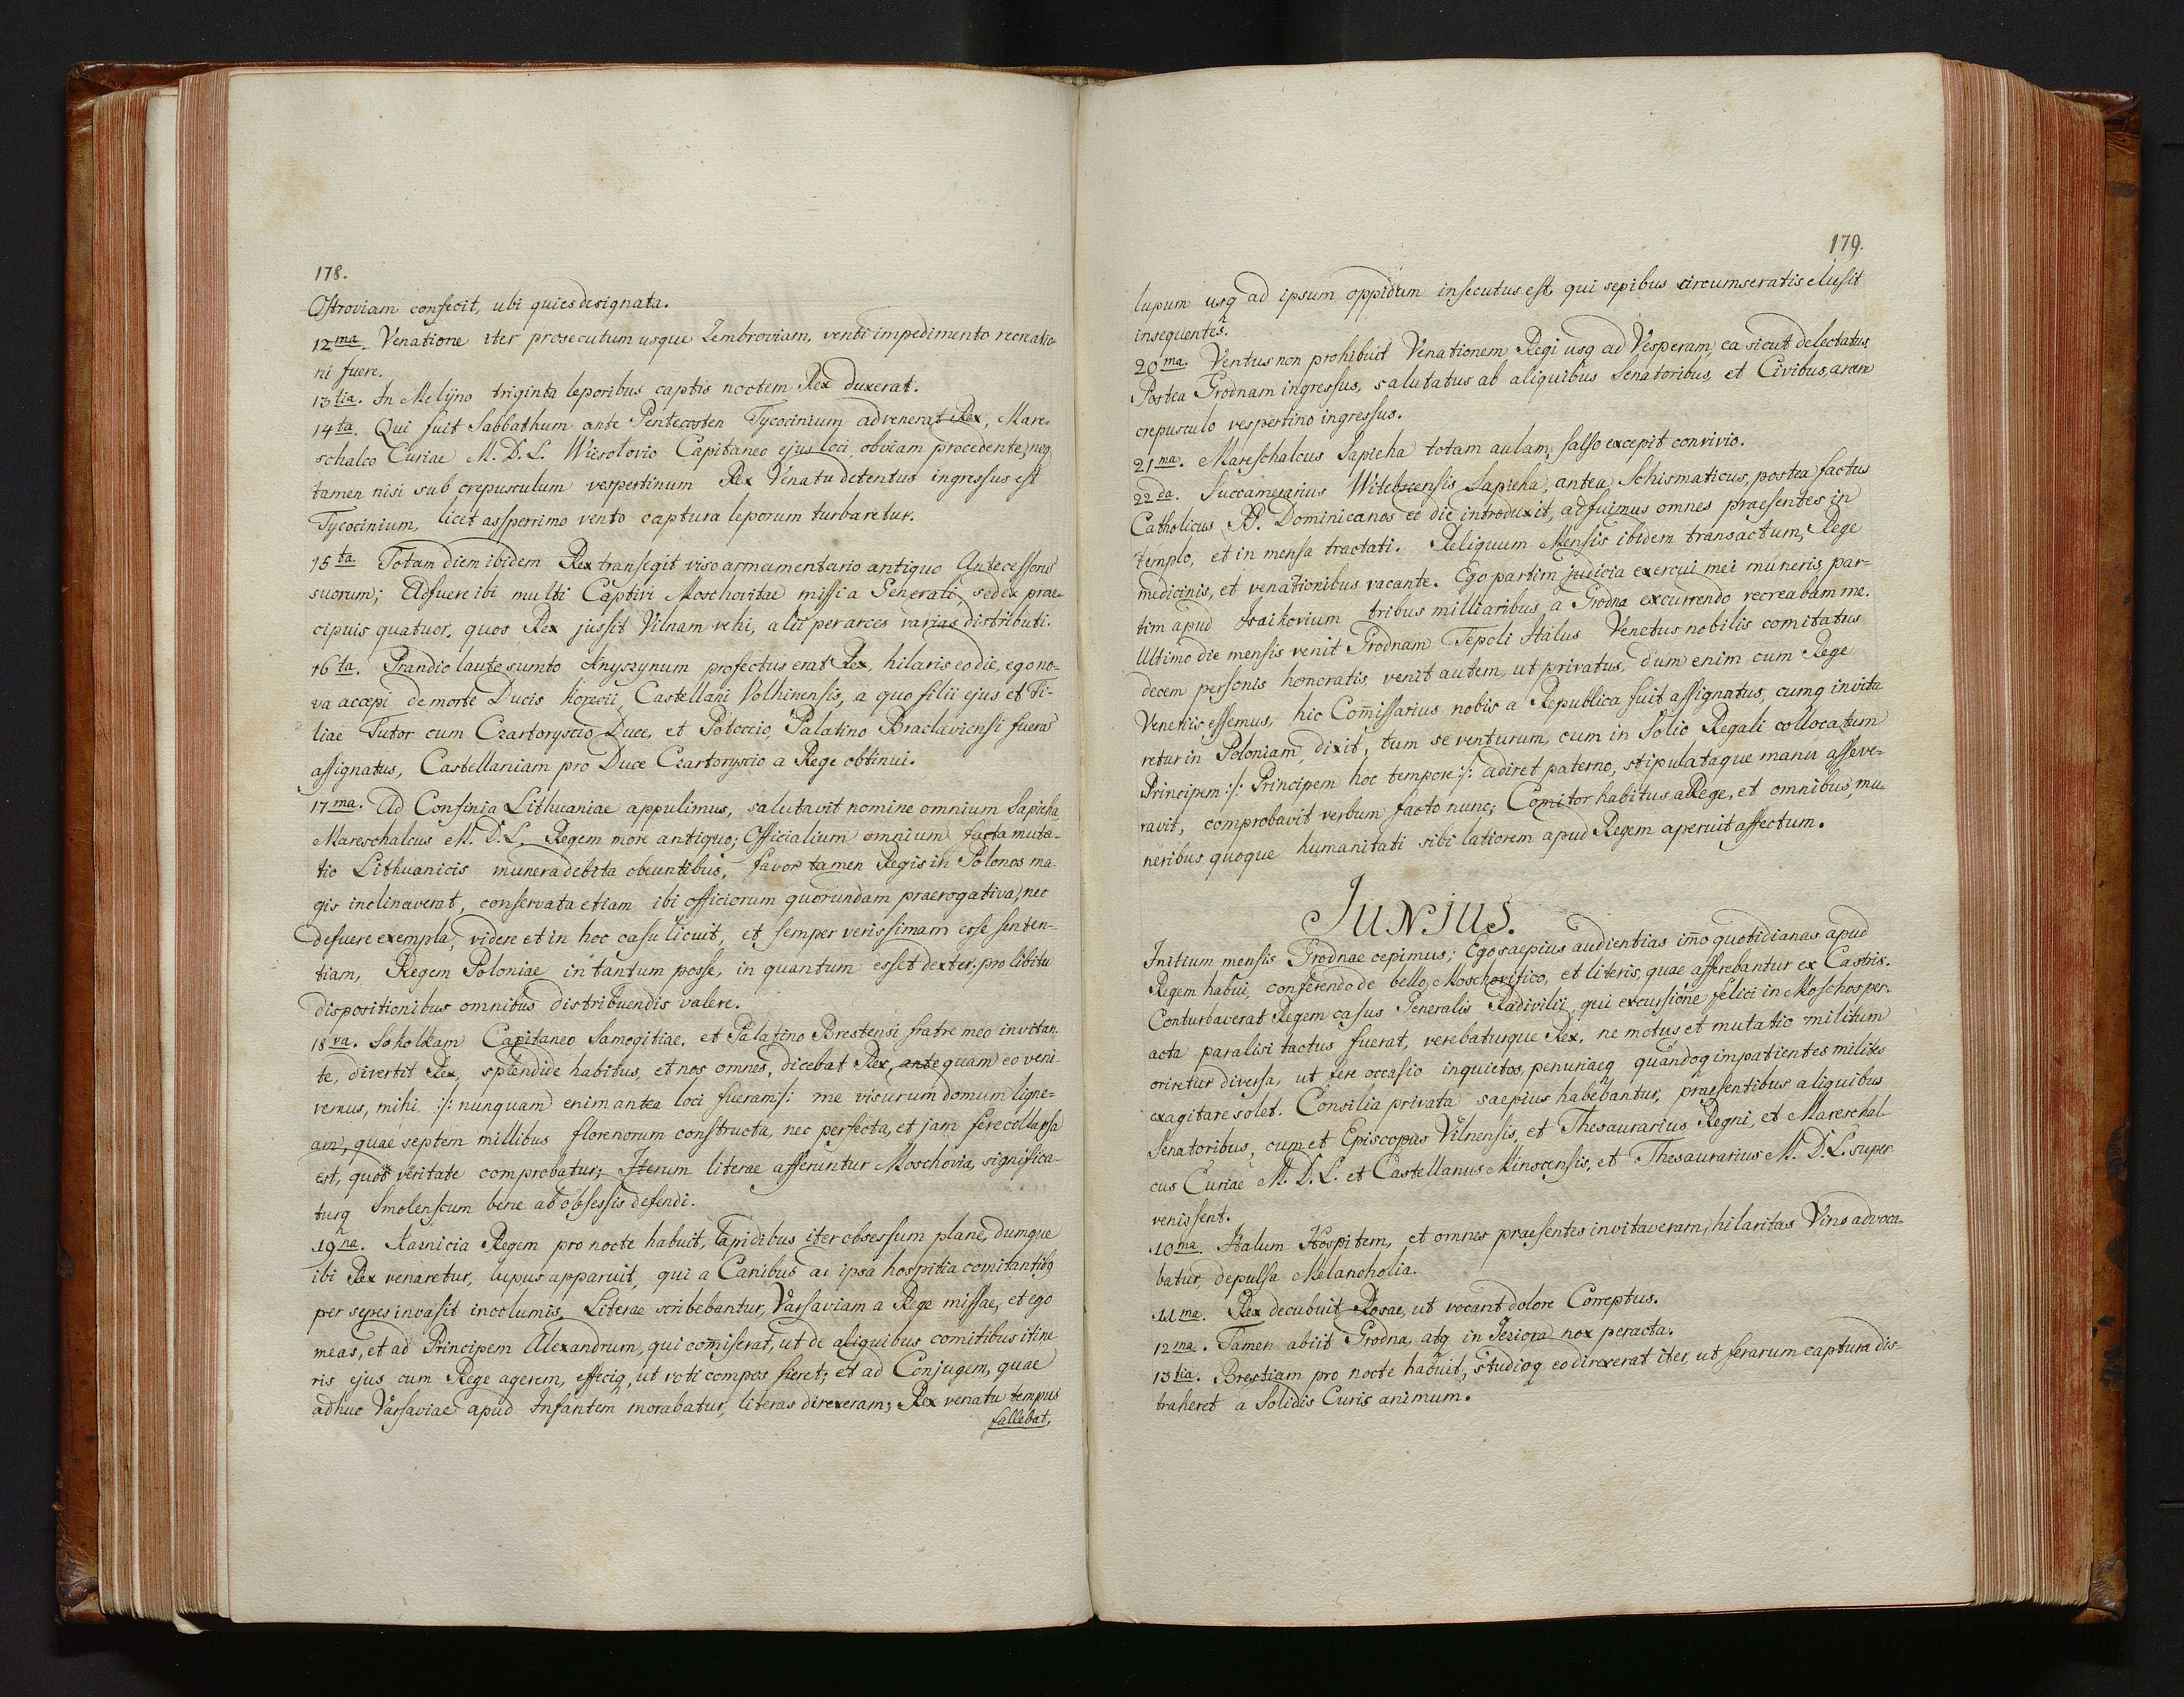 178.
Ostroviam confecit, ubi quies designata.
12ma. Venatione iter prosecutum usque Zembroviam, venti impedimento recreatio-
ni fuere.
13tia. In Melijno triginta leporibus captis noctem Rex duxerat.
14ta. Qui fuit Sabbathum ante Pentecosten Tycocinium advenerat Rex, Mare-
schalco Curiae M. D. L. Wiesolovio Capitaneo ejus loci obviam procedente, neq
tamen nisi sub crepusculum vespertinum Rex Venatu detentus ingressus est
Tycocinium, licet assperrimo vento captura leporum turbaretur.
15ta. Totam diem ibidem Rex transegit viso armamentario antiquo Antecessorū
suorum; Adfuere ibi multi Captivi Moschovitae missi a Generali, sed ex prae-
cipuis quatuor, quos Rex jussit Vilnam vehi, alii per arces varias distributi.
16ta. Prandio laute sumto Knyszynum profectus erat Rex, hilaris eo die, ego no-
va accepi de morte Ducis Korecii, Castellani Volhinensis, a quo filii ejus et Fi-
liae Tutor cum Czartoryscio Duce, et Potoccio, Palatino Braclaviensi fuerā
assignatus, Castellaniam pro Duce Czartoryscio a Rege obtinui.
17ma. Ad Confinia Lithuaniae appulimus, salutavit nomine omnium Sapieha,
Mareschalcus M. D. L. Regem more antiquo; Officialium omnium facta muta-
tio Lithuanicis munera debita obeuntibus, favor tamen Regis in Polonos ma-
gis inclinaverat, conservata etiam ibi officiorum quorundam praerogativa, nec
defuere exempla, videre et in hoc casu licuit, et semper verissimam esse senten-
tiam, Regem Poloniae in tantum posse, in quantum esset dexter; pro libitu
dispositionibus omnibus distribuendis valere.
18va. Sokolkam Capitaneo Samogitiae, et Palatino Brestensi fratre meo invitan-
te, divertit Rex, splendide habitus, et nos omnes, dicebat Rex, antequam eo veni-
remus, mihi :/: nunquam enim antea loci fueram :/: me visurum domum ligne-
am, quae septem millibus florenorum constructa, nec perfecta, et jam fere collapsa
est, quod veritate comprobatur; Iterum literae afferuntur Moschovia, significa-
turq Smolenscum bene ab obsessis defendi.
19na. Kaznicia Regem pro nocte habuit, lapidibus iter obsessum plane, dumque
ibi Rex venaretur, lupus apparuit, qui a Canibus ad ipsa hospitia comitantibq
per sepes invasit incolumis. Literae scribebantur, Varsaviam a Rege missae, et ego
meas, et ad Principem Alexandrum, qui com̄iserat, ut de aliquibus comitibus itine
ris ejus cum Rege agerem, effeciq, ut voti compos fieret; et ad Conjugem, quae
adhuc Varsaviae apud Infantem morabatur, literas direxeram; Rex venatu tempus
fallebat,
179.
lupum usq ad ipsum oppidum insecutus est, qui sepibus circumseratis elusit
insequentes.
20ma. Ventus non prohibuit Venationem Regi usq ad Vesperam, ea sicut delectatus,
Postea Grodnam ingressus, salutatus ab aliquibus Senatoribus, et Civibus, arcem
crepusculo vespertino ingressus.
21ma. Mareschalcus Sapieha totam aulam, salso excepit convivio.
22da. Succamerarius Witebscensis Sapieha, antea Schismaticus, postea factus
Catholicus PP. Dominicanos eo die introduxit, adfuimus omnes praesentes in
templo, et in mensa tractati. Reliquum Mensis ibidem transactum, Rege
medicinis, et venationibus vacante. Ego partim judicia exercui mei muneris par-
tim apud Isaikovium tribus milliaribus a Grodna excurrendo recreabam me.
Ultimo die mensis venit Grodnam Tepoli Italus Venetus nobilis comitatus
decem personis honoratis, venit autem, ut privatus, dum enim cum Rege
Venetiis essemus, hic Com̄issarius nobis a Republica fuit assignatus, cumq invita
retur in Poloniam, dixit, tum se venturum, cum in Solio Regali collocatum
Principem :/: Principem hoc tempore :/: adiret paterno, stipulataque manu asseve-
ravit, comprobavit verbum facto nunc; Comitor habitus a Rege, et omnibus, mu-
neribus quoque humanitati sibi latiorem apud Regem aperuit affectum.
JUNIUS.
Initium mensis Grodnae cepimus; Ego saepius audientias im̄o quotidianas apud
Regem habui, conferendo de bello Moschovitico, et literis, quae afferebantur ex Castris.
Conturbaverat Regem casus Generalis Radivilii, qui excursione felici in Moschos per-
acta paralisi tactus fuerat, verebaturque Rex, ne motus et mutatio militum
oriretur diversa, ut fere occasio inquietos, penuriaeq quandoq impatientes milites
exagitare solet. Consilia privata saepius habebantur, praesentibus aliquibus
Senatoribus, cum et Episcopus Vilnensis, et Thesaurarius Regni, et Mareschal-
cus Curiae M. D. L. et Castellanus Minscensis, et Thesaurarius M. D. L. super
venissent.
10ma. Italum Hospitem, et omnes praesentes invitaveram, hilaritas Vino advoca-
batur, depulsa Melancholia.
11ma. Rex decubuit Rosae, ut vocant dolore Correptus.
12ma. Tamen abiit Grodna, atq in Jeziora nox peracta.
13tia. Brestiam pro nocte habuit, studioq eo direxerat iter, ut ferarum captura dis-
traheret a Solidis Curis animum.